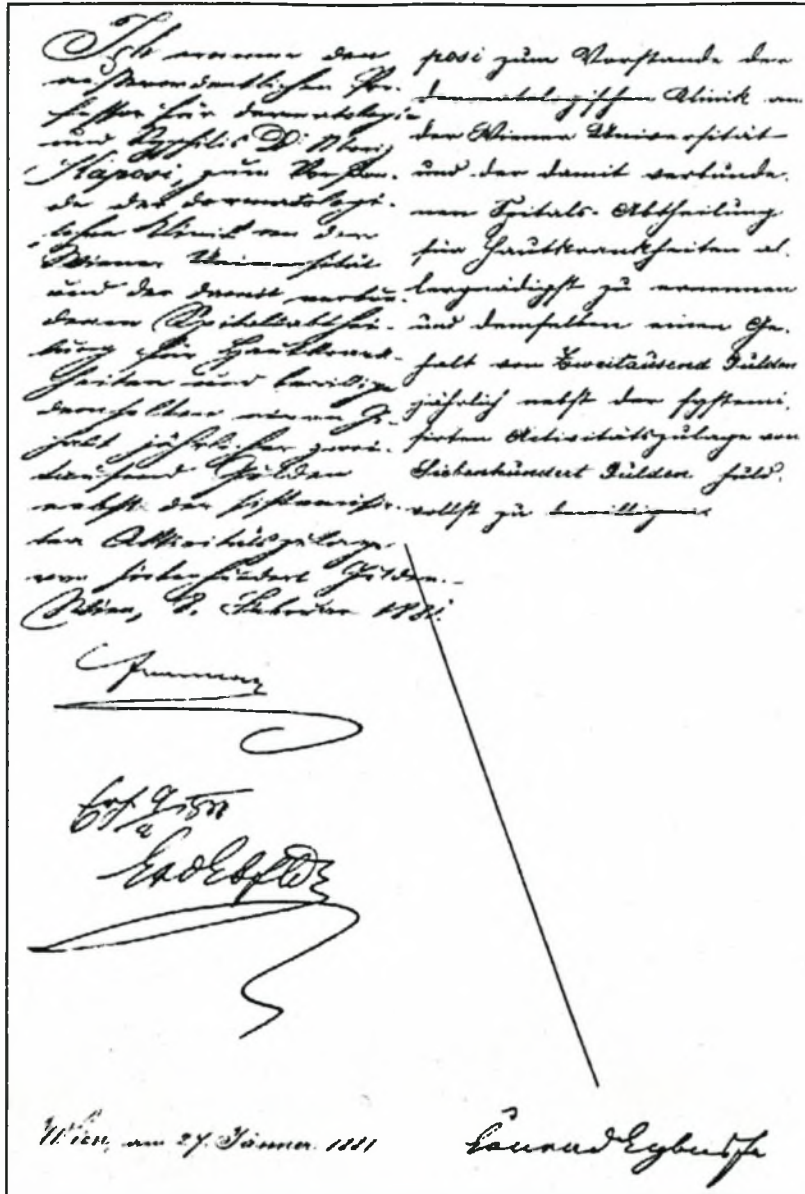 Ich ernenne den
außerordentlichen Pro-
fessor für Dermatologie
und Syphilis Dr. Moriz
Kaposi, zum Vorstan-
de der dermatologi-
schen Klinik an der
Wiener Universität
und der damit verbun-
denen Spitalsabthei-
lung für Hautkrank-
heiten und bewillige
demselben einen Ge-
halt jährlicher zwei-
tausend Gulden
nebst der systemisir-
ten Aktivitätszulage
von siebenhundert Gulden.
Wien, 8. Februar 1881.
Wien, am 27. Jänner 1881
posi zum Vorstande der
dermatologischen Klinik an
der Wiener Universität
und der damit verbunde-
nen Spitals-Abtheilung
für Hautkrankheiten al-
lergnädigst zu ernennen
und demselben einen Ge-
halt von Zweitausend Gulden
jährlich nebst der systemi-
sirten Activitätszulage von
Siebenhundert Gulden huld-
vollst zu bewilligen.
Conrad Eybesfe